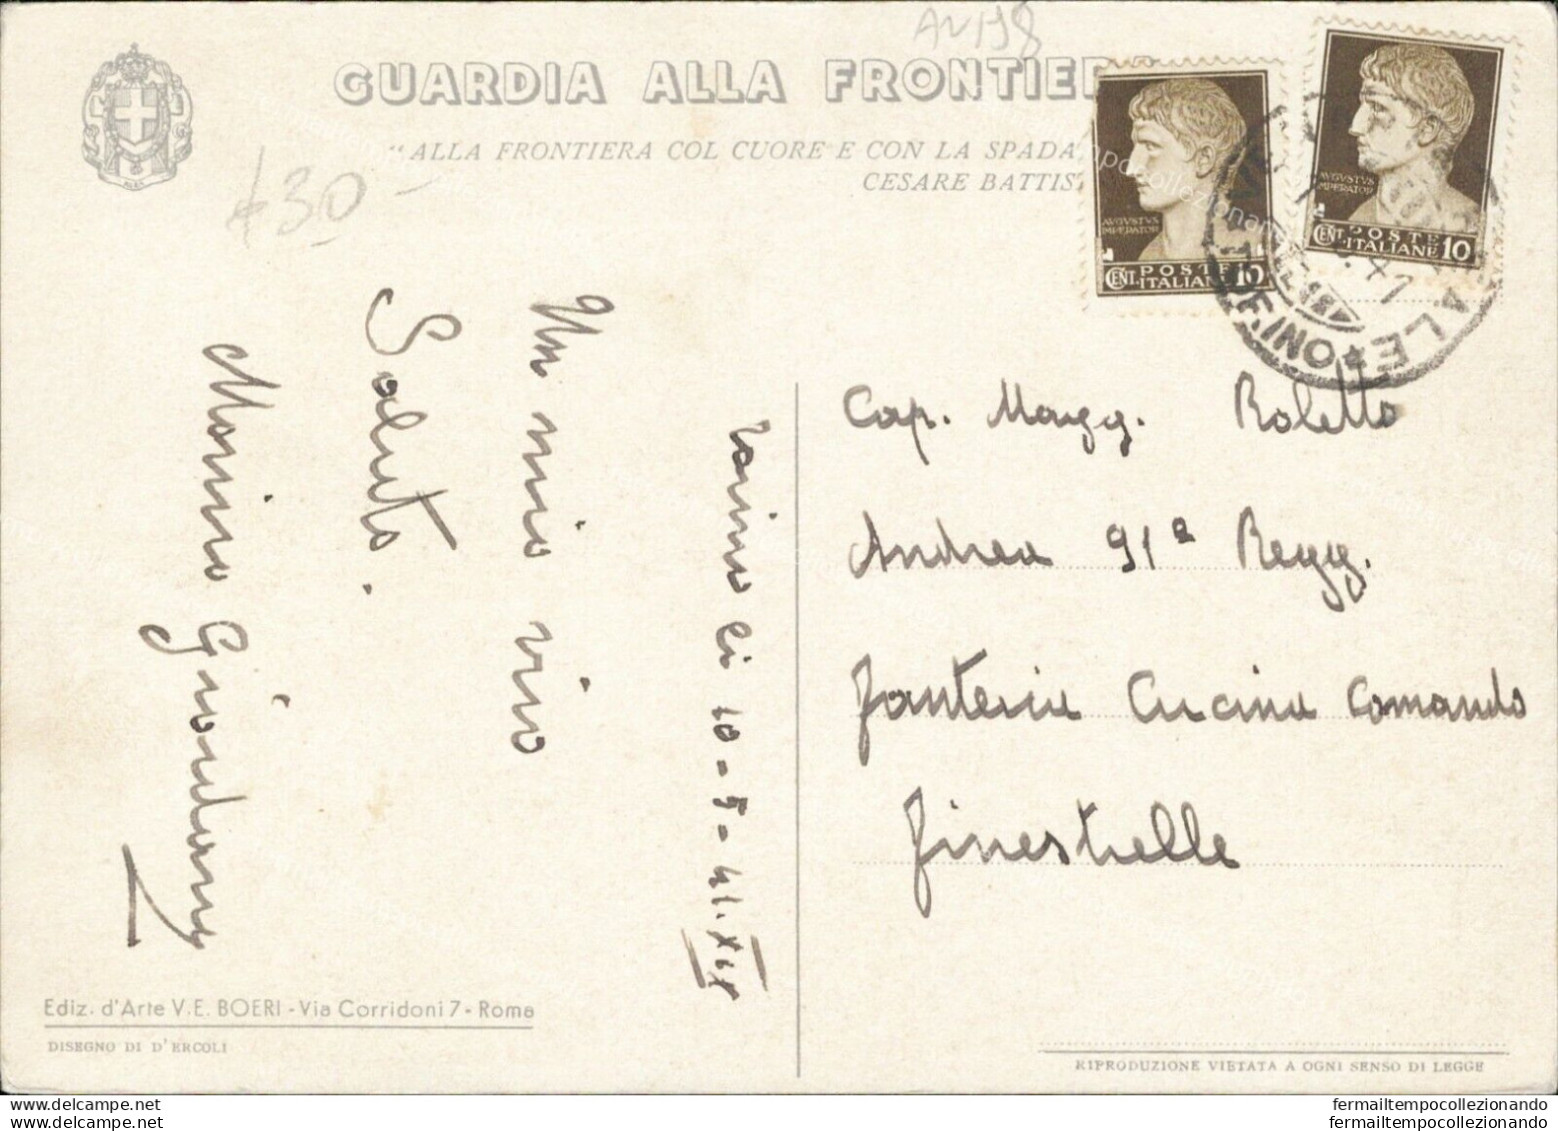 AV198
GUARDIA ALLA FRONTIER
"ALLA FRONTIERA COL CUORE E CON LA SPADA
CESARE BATTIS
£30-
AVGVSTVS
IMPERATOR
CENT. POSTE ITALIANE 10
AVGVSTVS
IMPERATOR
CENT. POSTE ITALIANE 10
Torino li 10-5-41. XIX
Un mio vivo
Saluto.
Giordany
Cap. Magg. Roletto
Andrea 91ª Regg.
Fanteria Cucina Comando
Finestrelle
Ediz. d'Arte V. E. BOERI - Via Corridoni 7 - Roma
DISEGNO DI D'ERCOLI
RIPRODUZIONE VIETATA A OGNI SENSO DI LEGGE
fermailtempocollezionando
fermailtempocollezionando
fermailtempocollezionando
fermailtempocollezionando